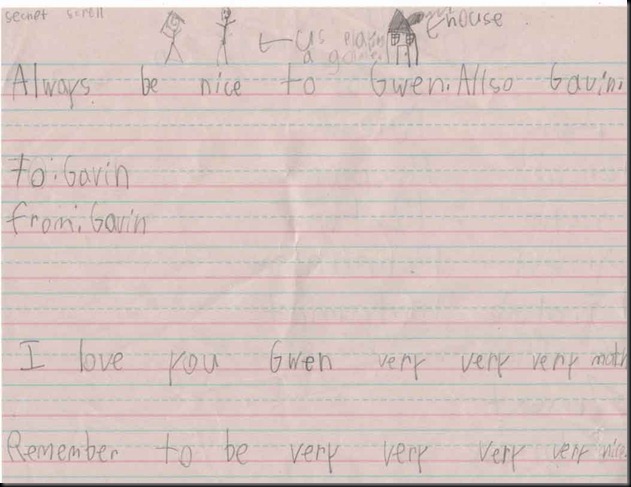 secret scroll
us playin
a game.
house
Always be nice to Gwen. Allso Gavin.
To: Gavin
from: Gavin
I love you Gwen very very very moth
Remember to be very very very very nice.